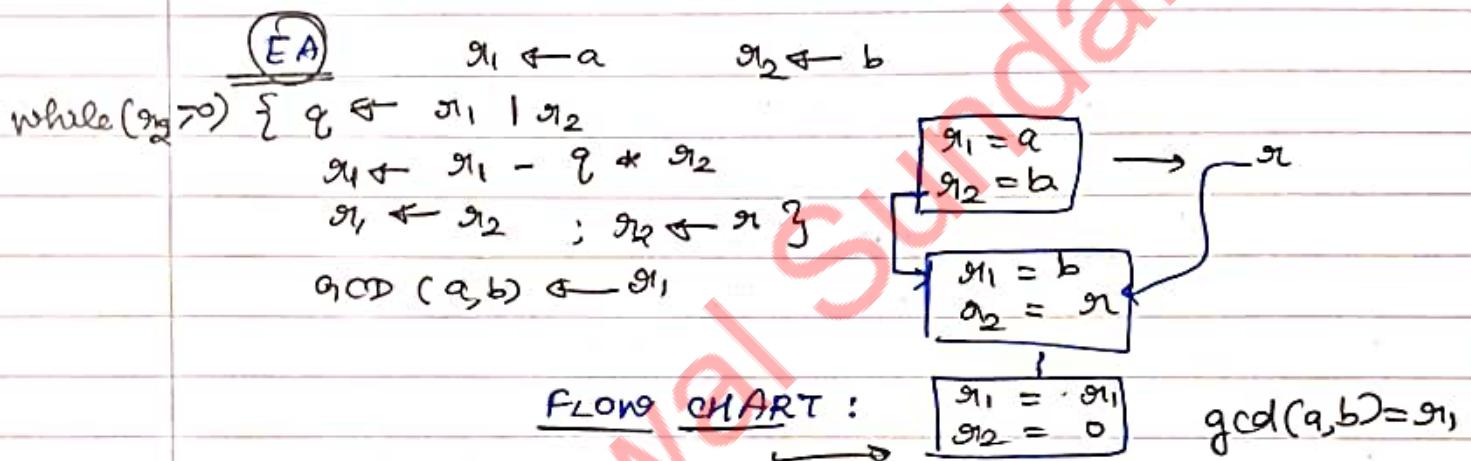 EA r₁ ← a r₂ ← b
while(r₂>0) { q ← r₁ | r₂
r₁ ← r₁ - q * r₂
r₁ ← r₂ ; r₂ ← r }
GCD (a,b) ← r₁
r₁ = a
r₂ = b
→ r
r₁ = b
r₂ = r
FLOW CHART :
r₁ = r₁
r₂ = 0
gcd(a,b)=r₁